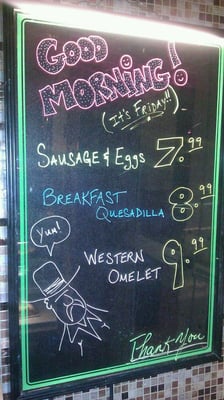 GOOD
MORNING!
(IT'S FRIDAY!!)
SAUSAGE & EGGS 7.99
BREAKFAST
QUESADILLA 8.99
Yum!
WESTERN
OMELET 9.99
Thank You